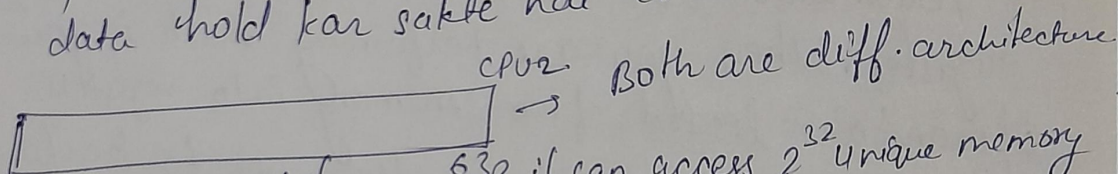 data hold kar sakte hai
CPU2. → Both are diff. architecture
it can access 2^32 unique memory